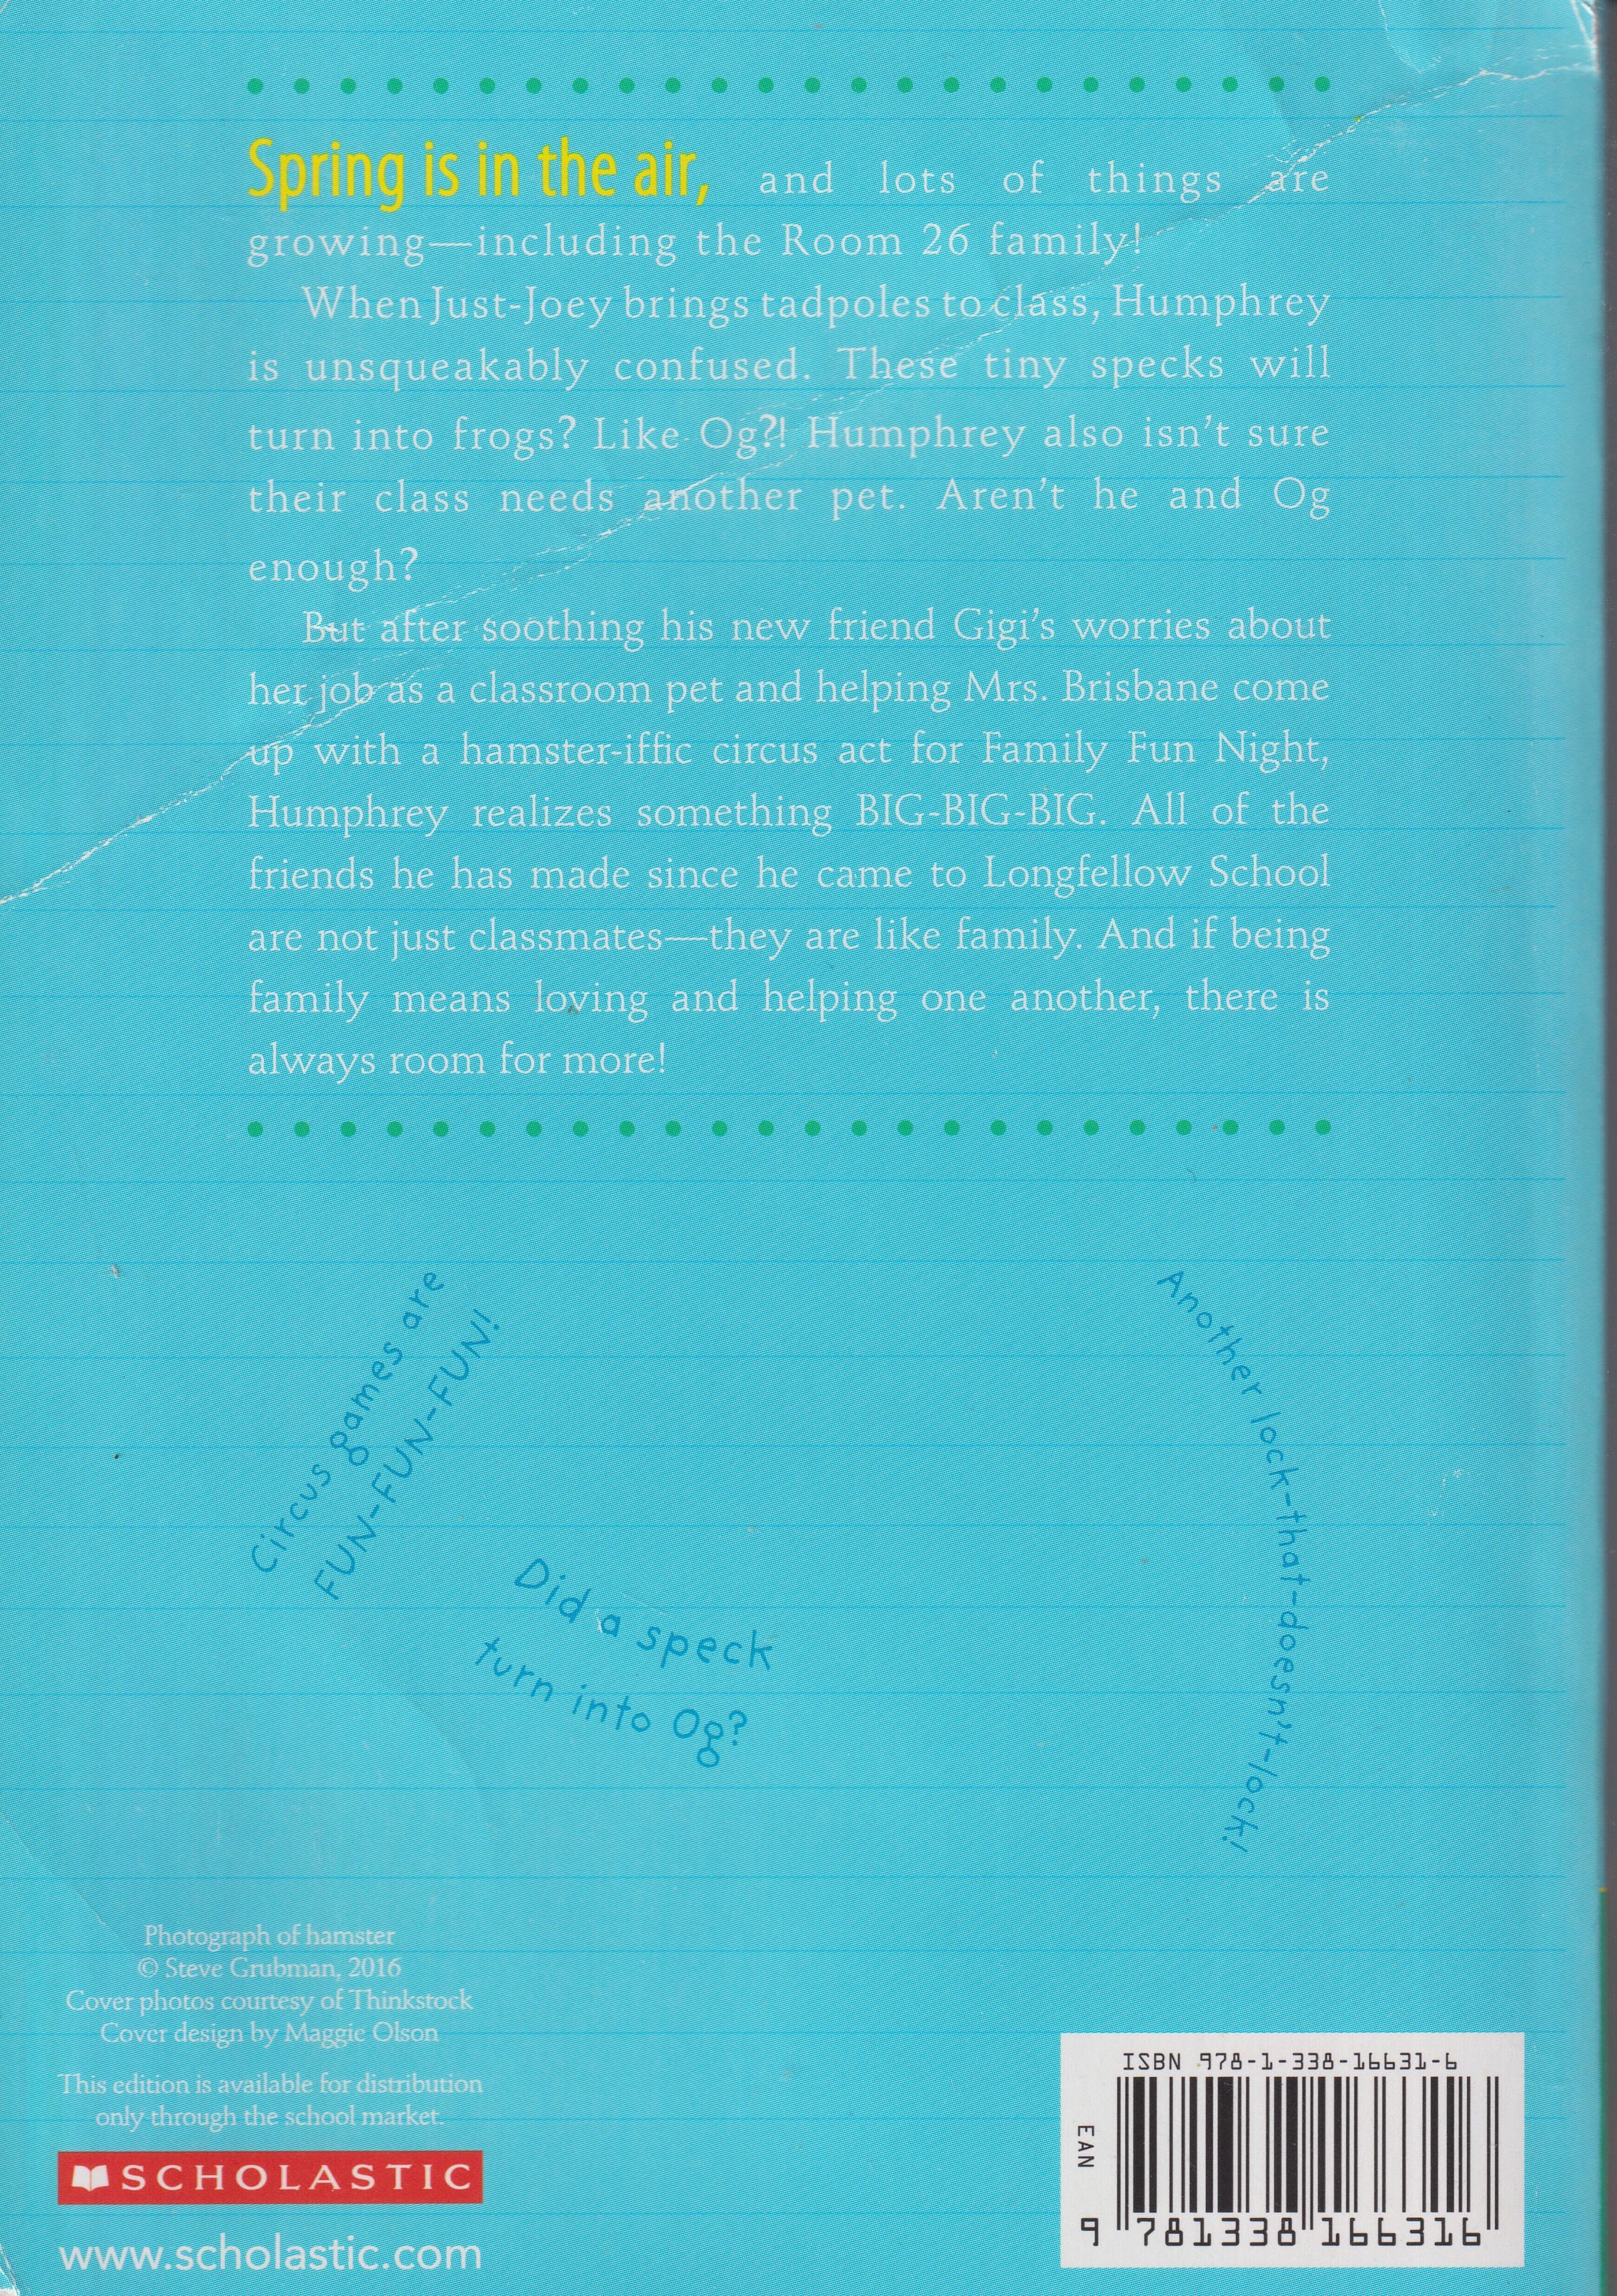 Spring is in the air, and lots of things are
growing—including the Room 26 family!
When Just-Joey brings tadpoles to class, Humphrey
is unsqueakably confused. These tiny specks will
turn into frogs? Like Og?! Humphrey also isn't sure
their class needs another pet. Aren't he and Og
enough?
But after soothing his new friend Gigi's worries about
her job as a classroom pet and helping Mrs. Brisbane come
up with a hamster-iffic circus act for Family Fun Night,
Humphrey realizes something BIG-BIG-BIG. All of the
friends he has made since he came to Longfellow School
are not just classmates—they are like family. And if being
family means loving and helping one another, there is
always room for more!
Circus games are
FUN-FUN-FUN!
Did a speck
turn into Og?
Another lock-that-doesn't-lock!
Photograph of hamster
© Steve Grubman, 2016
Cover photos courtesy of Thinkstock
Cover design by Maggie Olson
This edition is available for distribution
only through the school market.
SCHOLASTIC
www.scholastic.com
ISBN 978-1-338-16631-6
EAN
9 781338 166316